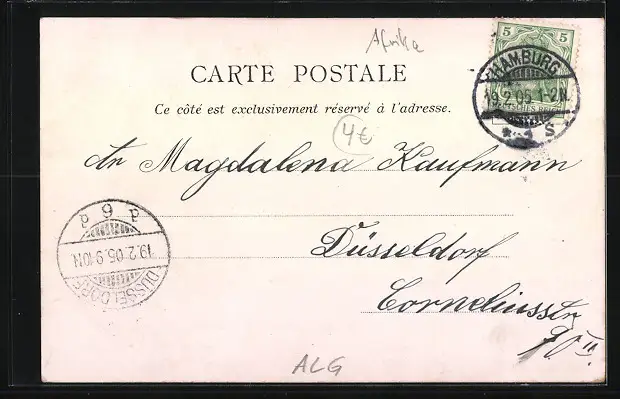 Afrika
5 5
HAMBURG
19.2.05.1-2N
* 1 S
CARTE POSTALE
Ce côté est exclusivement réservé à l'adresse.
4€
Magdalena Kaufmann
Düsseldorf
Corneliusstr
d 9 p
19.2.05.9-10N
DÜSSELDORF
ALG